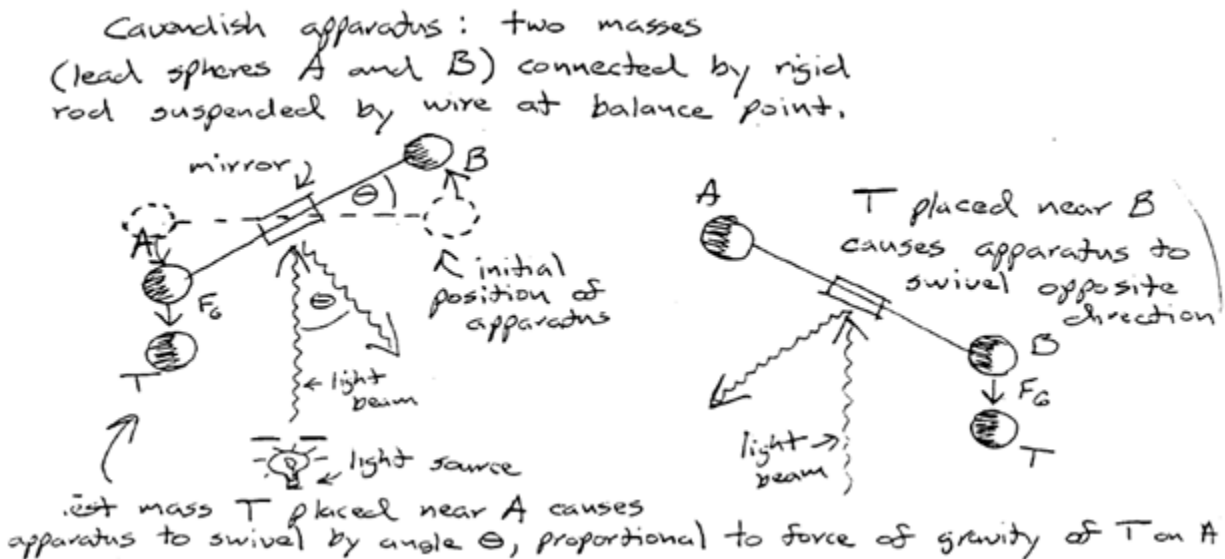 Cavendish apparatus: two masses
(lead spheres A and B) connected by rigid
rod suspended by wire at balance point.
mirror
B
θ
A
initial
position of
apparatus
F_G
θ
T
light
beam
light source
A
T placed near B
causes apparatus to
swivel opposite
direction
B
F_G
T
light
beam
est mass T placed near A causes
apparatus to swivel by angle θ, proportional to force of gravity of T on A